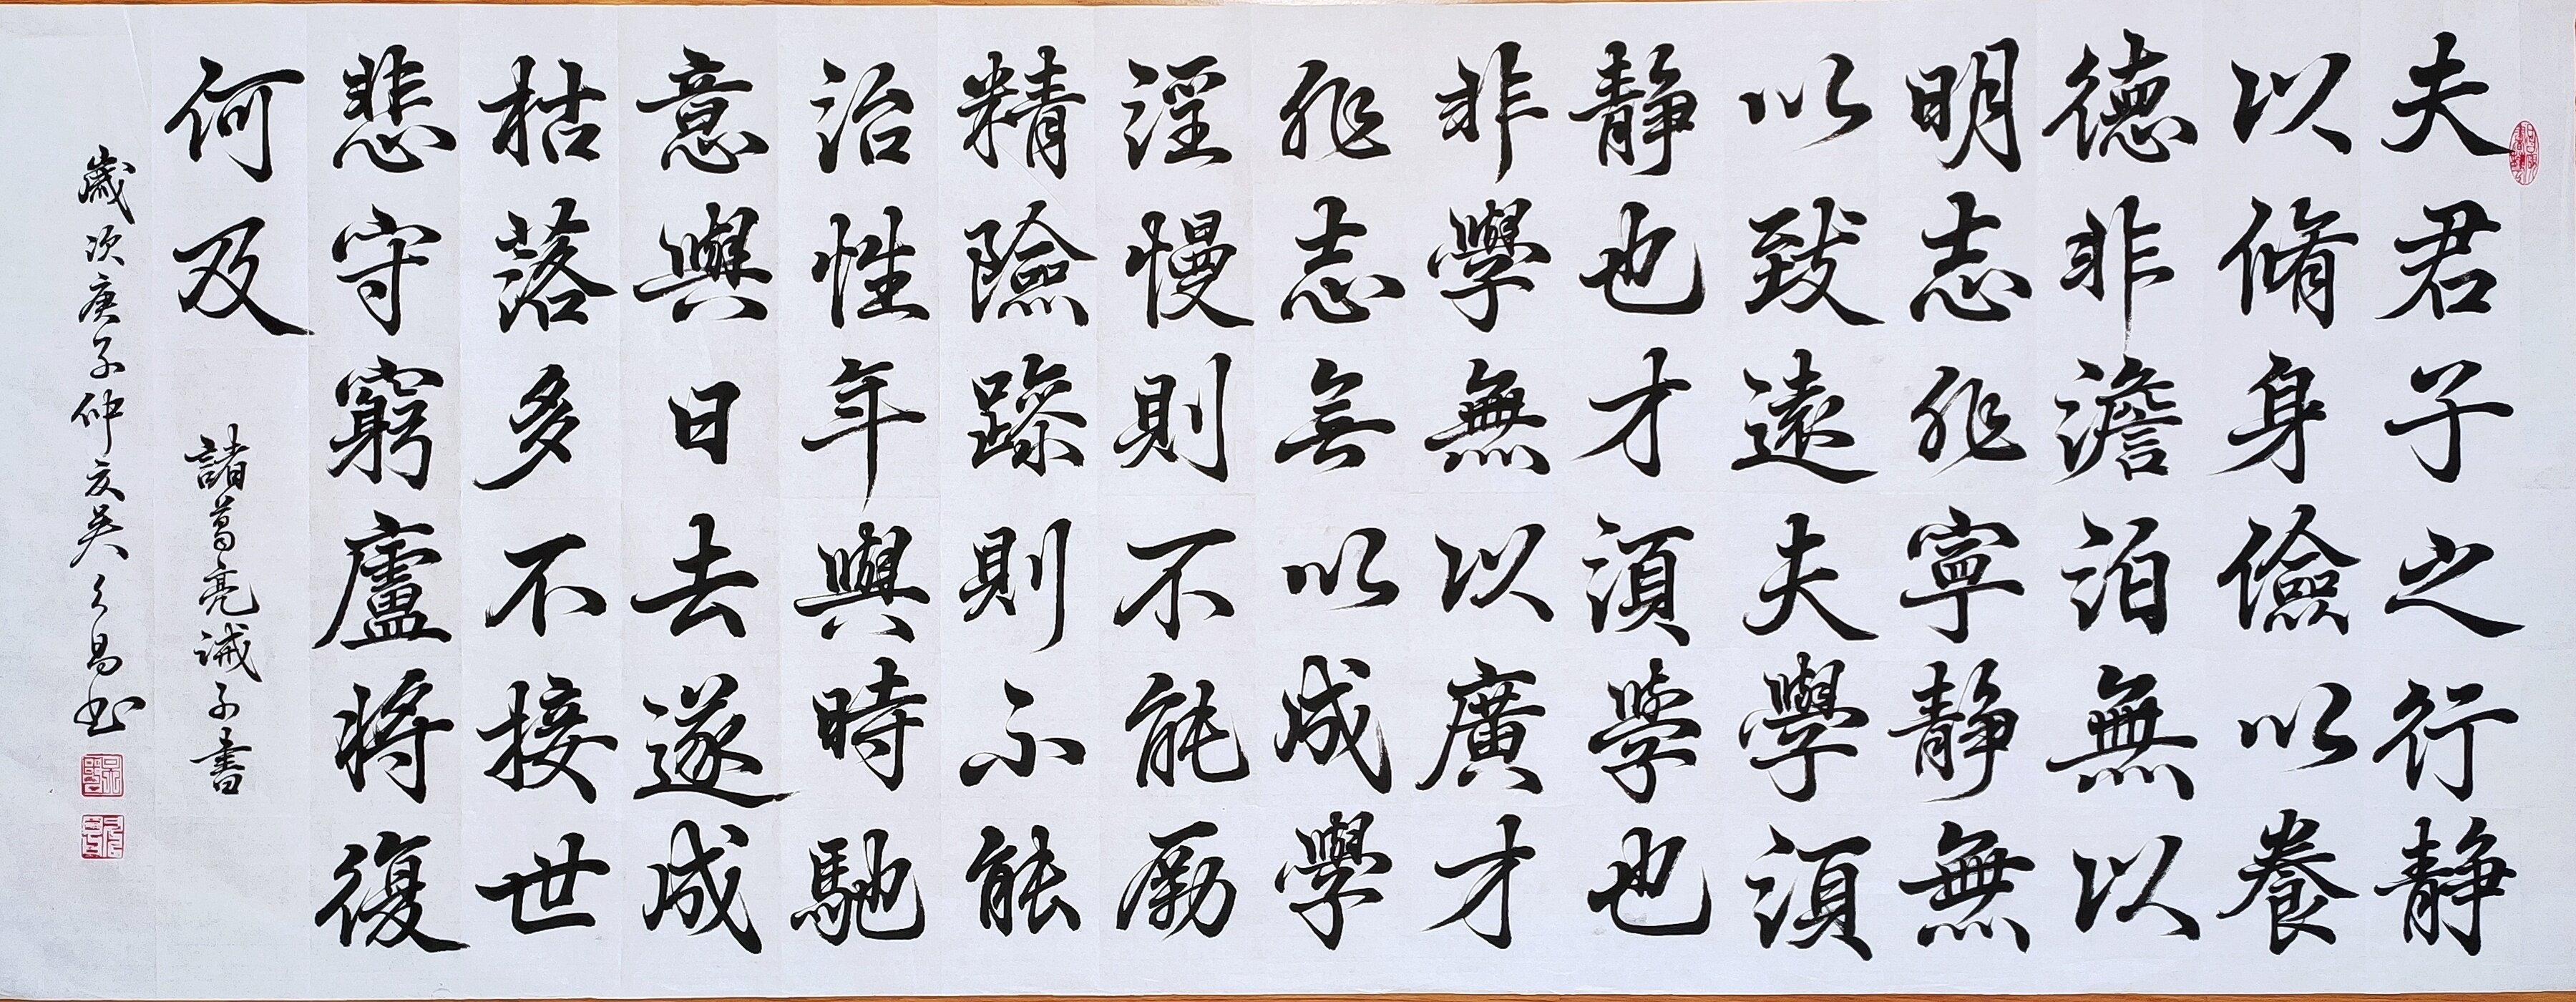 夫君子之行靜
以脩身儉以養
德非澹泊無以
明志非寧靜無
以致遠夫學須
靜也才須學也
非學無以廣才
非志無以成學
淫慢則不能勵
精險躁則不能
治性年與時馳
意與日去遂成
枯落多不接世
悲守窮廬將復
何及
諸葛亮誡子書
歲次庚子仲夏吳久昌书